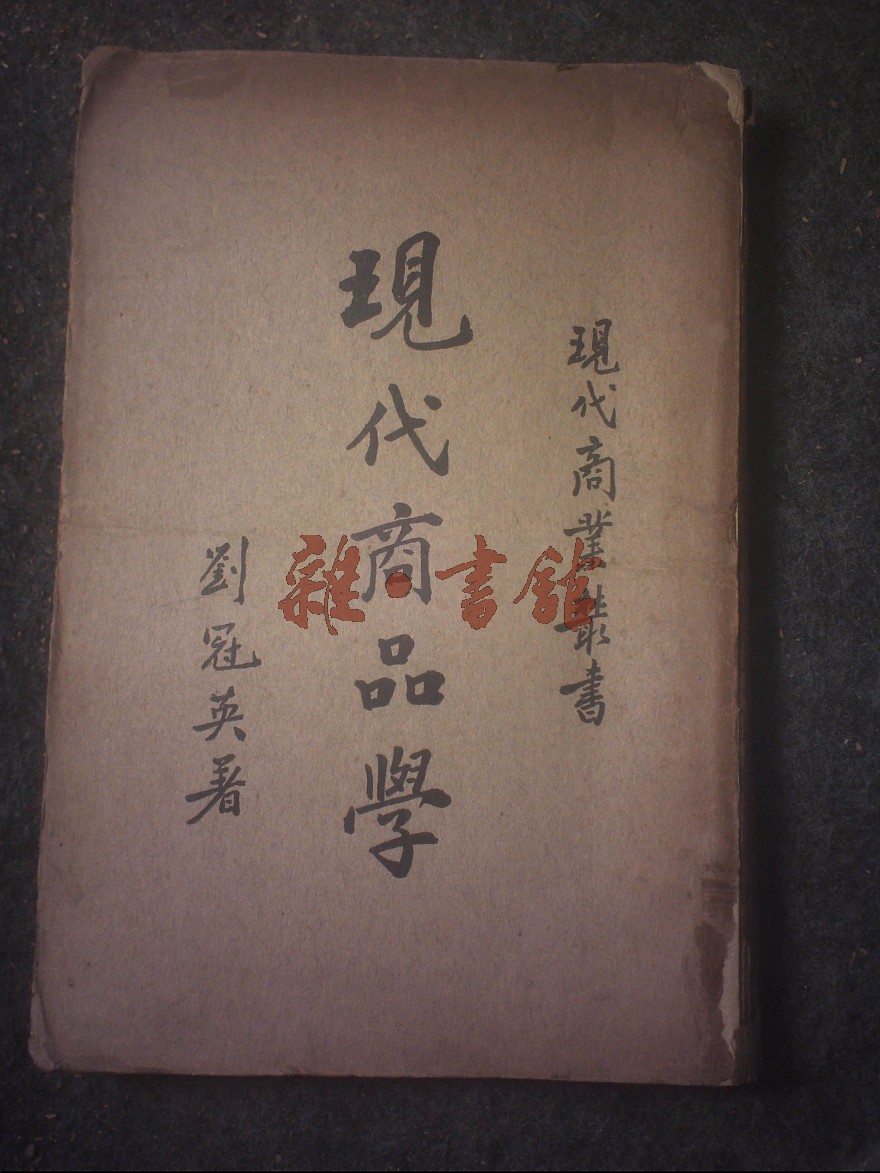 現代商業叢書
現代商品學
劉冠英著
雜·書館